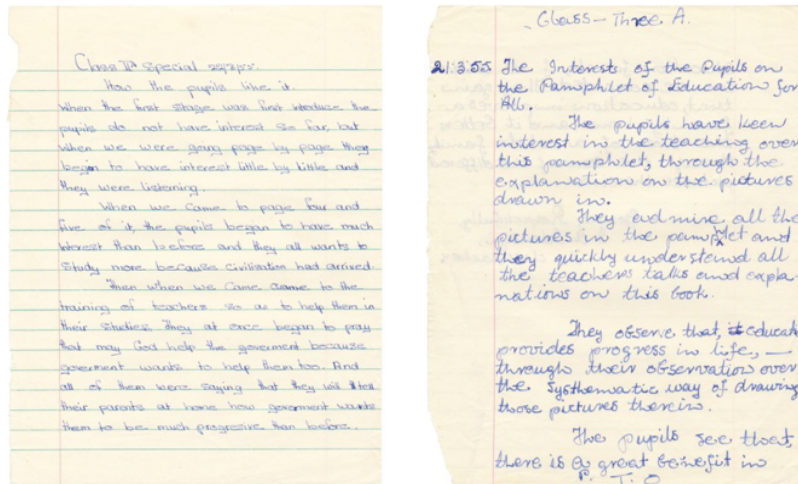 Class IIA Special 22/3/55.
How the pupils like it.
When the first stage was first introduce the
pupils do not have interest so far, but
when we were going page by page they
begin to have interest little by little and
they were listening.
When we came to page four and
five of it, the pupils began to have much
interest than before and they all wants to
study more because civilisation had arrived.
Then when we came came to the
training of teachers so as to help them in
their studies, they at once began to pray
that may God help the goverment because
goverment wants to help them too. And
all of them were saying that they will tell
their parents at home how goverment wants
them to be much progresive than before.
Class - Three A.
21:3:55 The Interests of the Pupils on
the Pamphlet of Education for
All.
The pupils have keen
interest in the teaching over
this pamphlet, through the
explanation on the pictures
drawn in.
They exmine all the
pictures in the pamplet and
they quickly understand all
the teachers talks and expla-
nations on this book.
They observe that, educat
provides progress in life, —
through their observation over
the systhematic way of drawing
those pictures therein.
The pupils see that,
there is a great benefit in
P. T. O